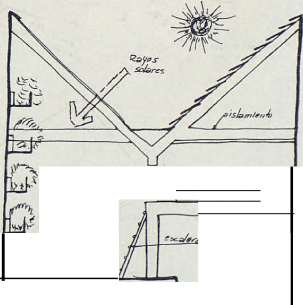 Rayos
solares
aislamiento
escalera